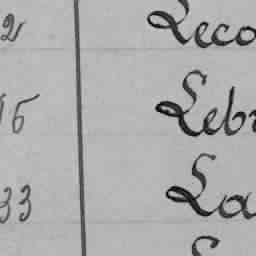 2 Leco
15 Lebr
33 La